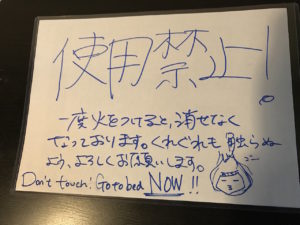 使用禁止!
一度火をつけると、消せなく
なっております。くれぐれも触らぬ
よう、よろしくお願いします。
Don't touch! Go to bed NOW!!